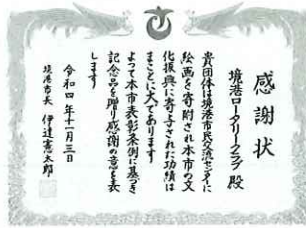 感謝状
境港ロータリークラブ 殿
貴団体は境港市民交流センターに
絵画を寄附され本市の文
化振興に寄与された功績は
まことに大であります
よって本市表彰条例に基づき
記念品を贈り感謝の意を表
します
令和四年十一月三日
境港市長 伊達憲太郎